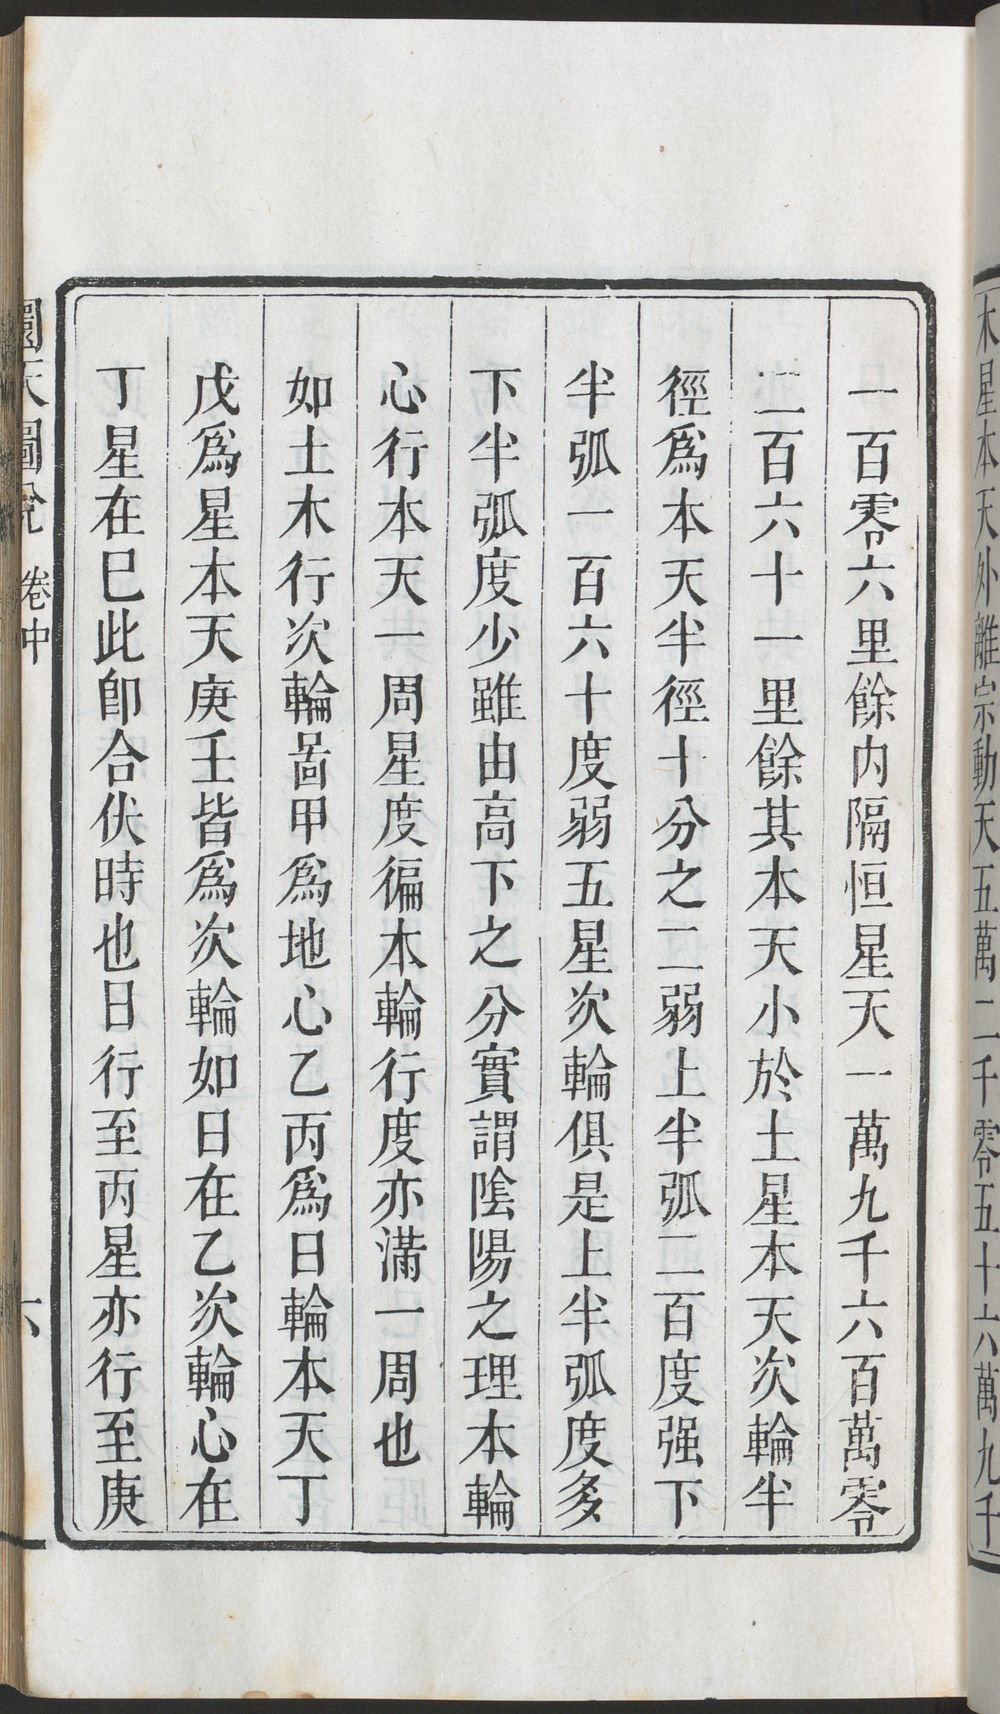 木星本天外離宗動天五萬二千零五十六萬九千
一百零六里餘内隔恒星天一萬九千六百萬零
二百六十一里餘其本天小於土星本天次輪半
徑爲本天半徑十分之二弱上半弧二百度强下
半弧一百六十度弱五星次輪俱是上半弧度多
下半弧度少雖由高下之分實謂陰陽之理本輪
心行本天一周星度徧本輪行度亦滿一周也
如土木行次輪啚甲爲地心乙丙爲日輪本天丁
戊爲星本天庚壬皆爲次輪如日在乙次輪心在
丁星在巳此卽合伏時也日行至丙星亦行至庚
圜天圖說 卷中 六